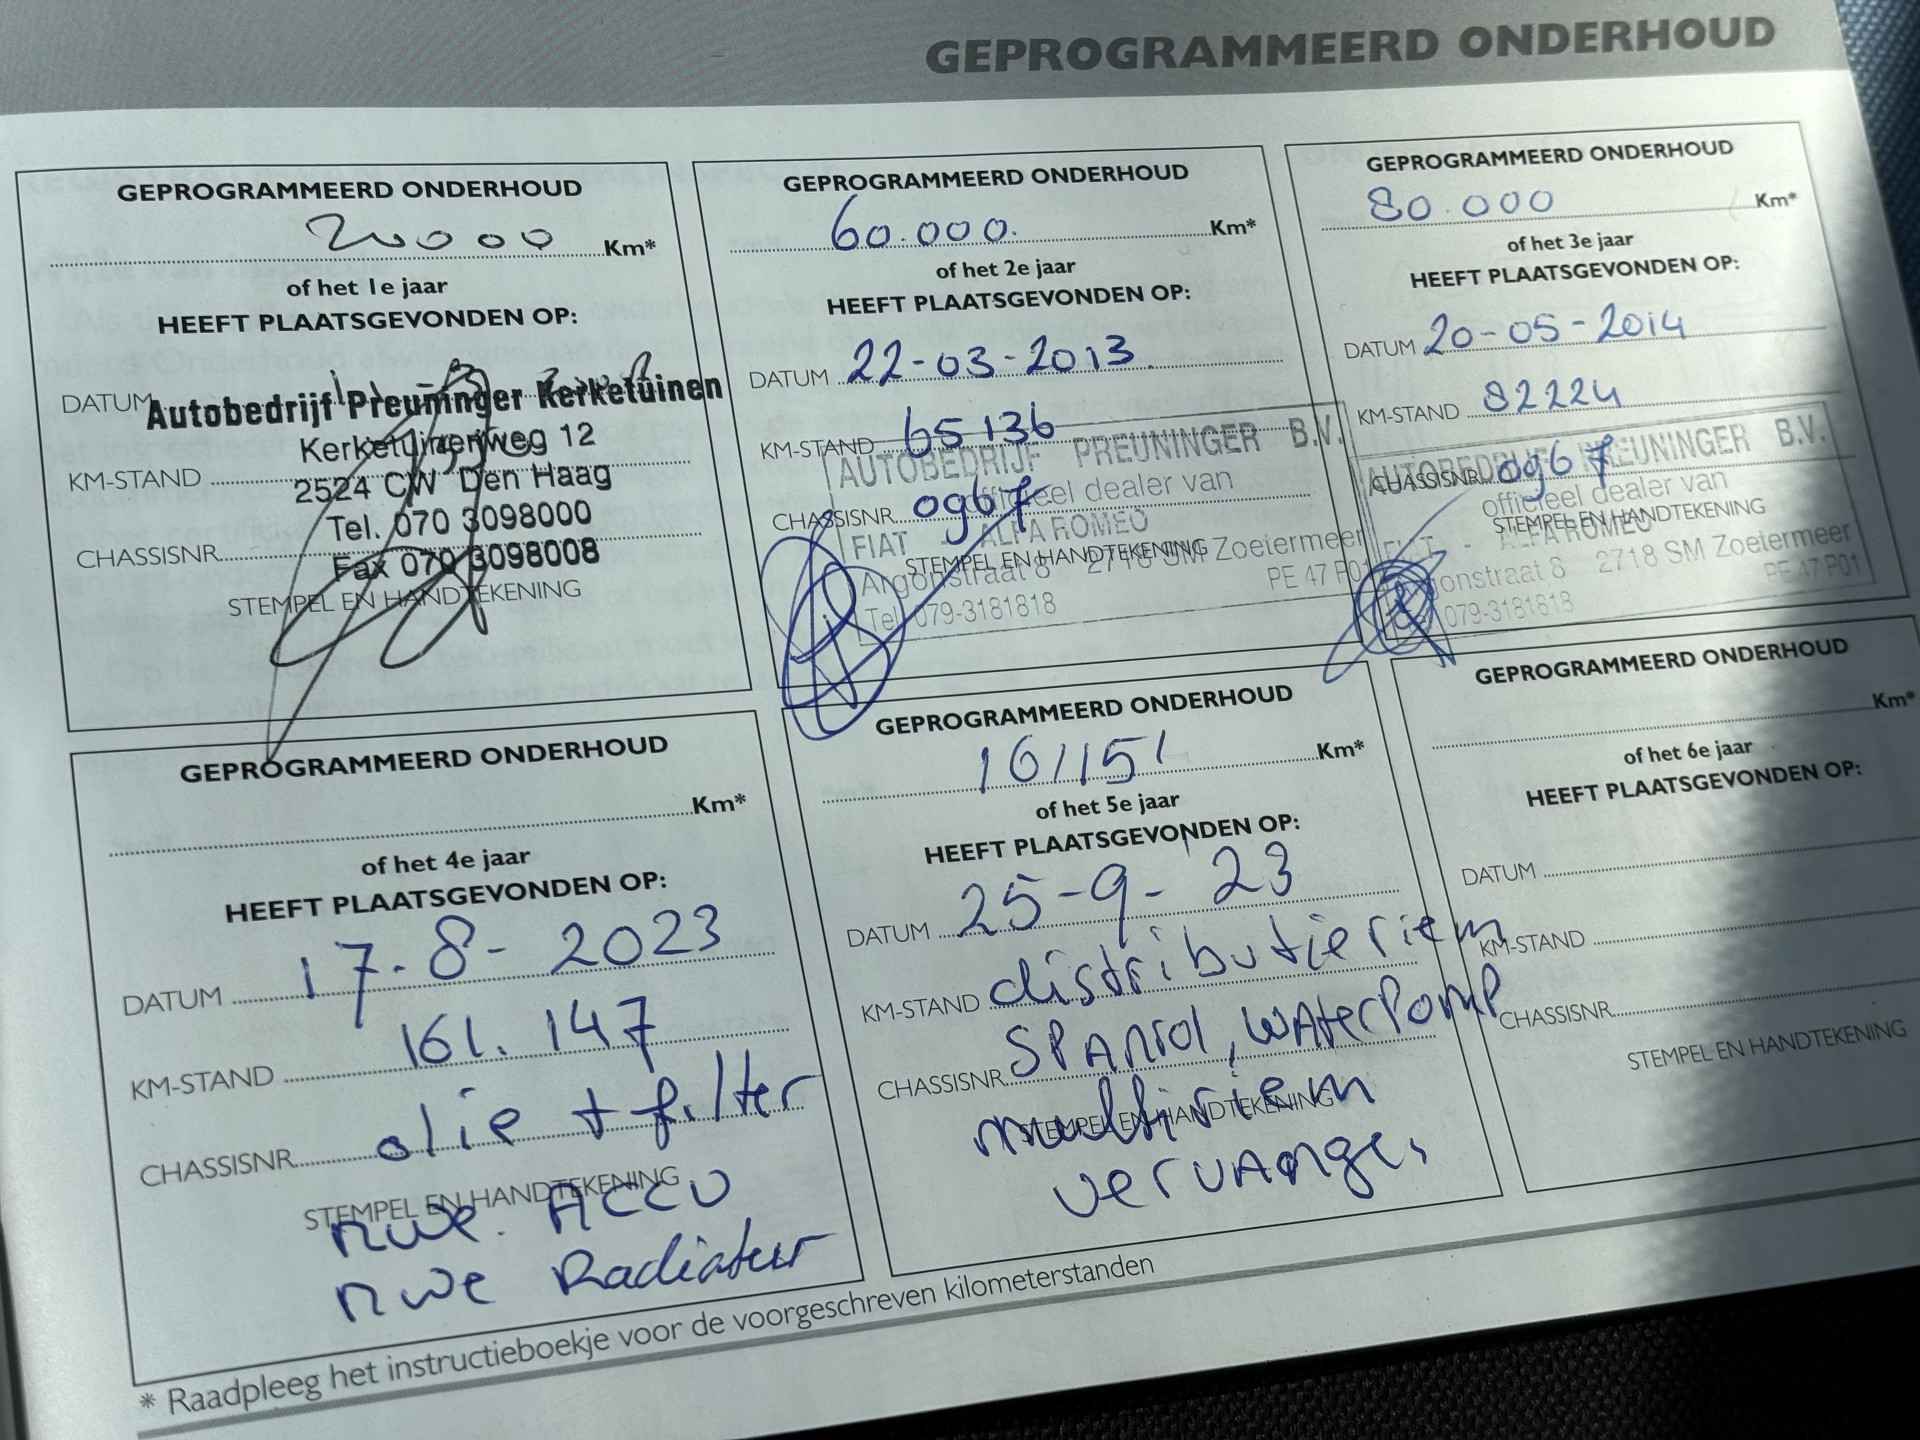 GEPROGRAMMEERD ONDERHOUD
GEPROGRAMMEERD ONDERHOUD
20000 Km*
of het 1e jaar
HEEFT PLAATSGEVONDEN OP:
DATUM
Autobedrijf Preuninger Kerketuinen
Kerketuinenweg 12
KM-STAND
2524 CW Den Haag
Tel. 070 3098000
CHASSISNR.
Fax 070 3098008
STEMPEL EN HANDTEKENING
GEPROGRAMMEERD ONDERHOUD
60.000. Km*
of het 2e jaar
HEEFT PLAATSGEVONDEN OP:
DATUM 22-03-2013
KM-STAND 65136
AUTOBEDRIJF PREUNINGER B.V.
officieel dealer van
CHASSISNR. 0967
FIAT - ALFA ROMEO
STEMPEL EN HANDTEKENING
Argonstraat 8 2718 SM Zoetermeer
PE 47 P01
Tel. 079-3181818
GEPROGRAMMEERD ONDERHOUD
80.000 Km*
of het 3e jaar
HEEFT PLAATSGEVONDEN OP:
DATUM 20-05-2014
KM-STAND 82224
AUTOBEDRIJF PREUNINGER B.V.
CHASSISNR. 0967
officieel dealer van
STEMPEL EN HANDTEKENING
FIAT - ALFA ROMEO
Argonstraat 8 2718 SM Zoetermeer
PE 47 P01
Tel. 079-3181818
GEPROGRAMMEERD ONDERHOUD
Km*
of het 4e jaar
HEEFT PLAATSGEVONDEN OP:
DATUM 17-8-2023
KM-STAND 161.147
CHASSISNR. olie + filter
STEMPEL EN HANDTEKENING
nwe. Accu
nwe Radiateur
GEPROGRAMMEERD ONDERHOUD
161151 Km*
of het 5e jaar
HEEFT PLAATSGEVONDEN OP:
DATUM 25-9-23
KM-STAND distributieriem
CHASSISNR. spanrol, waterpomp
STEMPEL EN HANDTEKENING
multiriem
vervange,
GEPROGRAMMEERD ONDERHOUD
Km*
of het 6e jaar
HEEFT PLAATSGEVONDEN OP:
DATUM
KM-STAND
CHASSISNR.
STEMPEL EN HANDTEKENING
* Raadpleeg het instructieboekje voor de voorgeschreven kilometerstanden